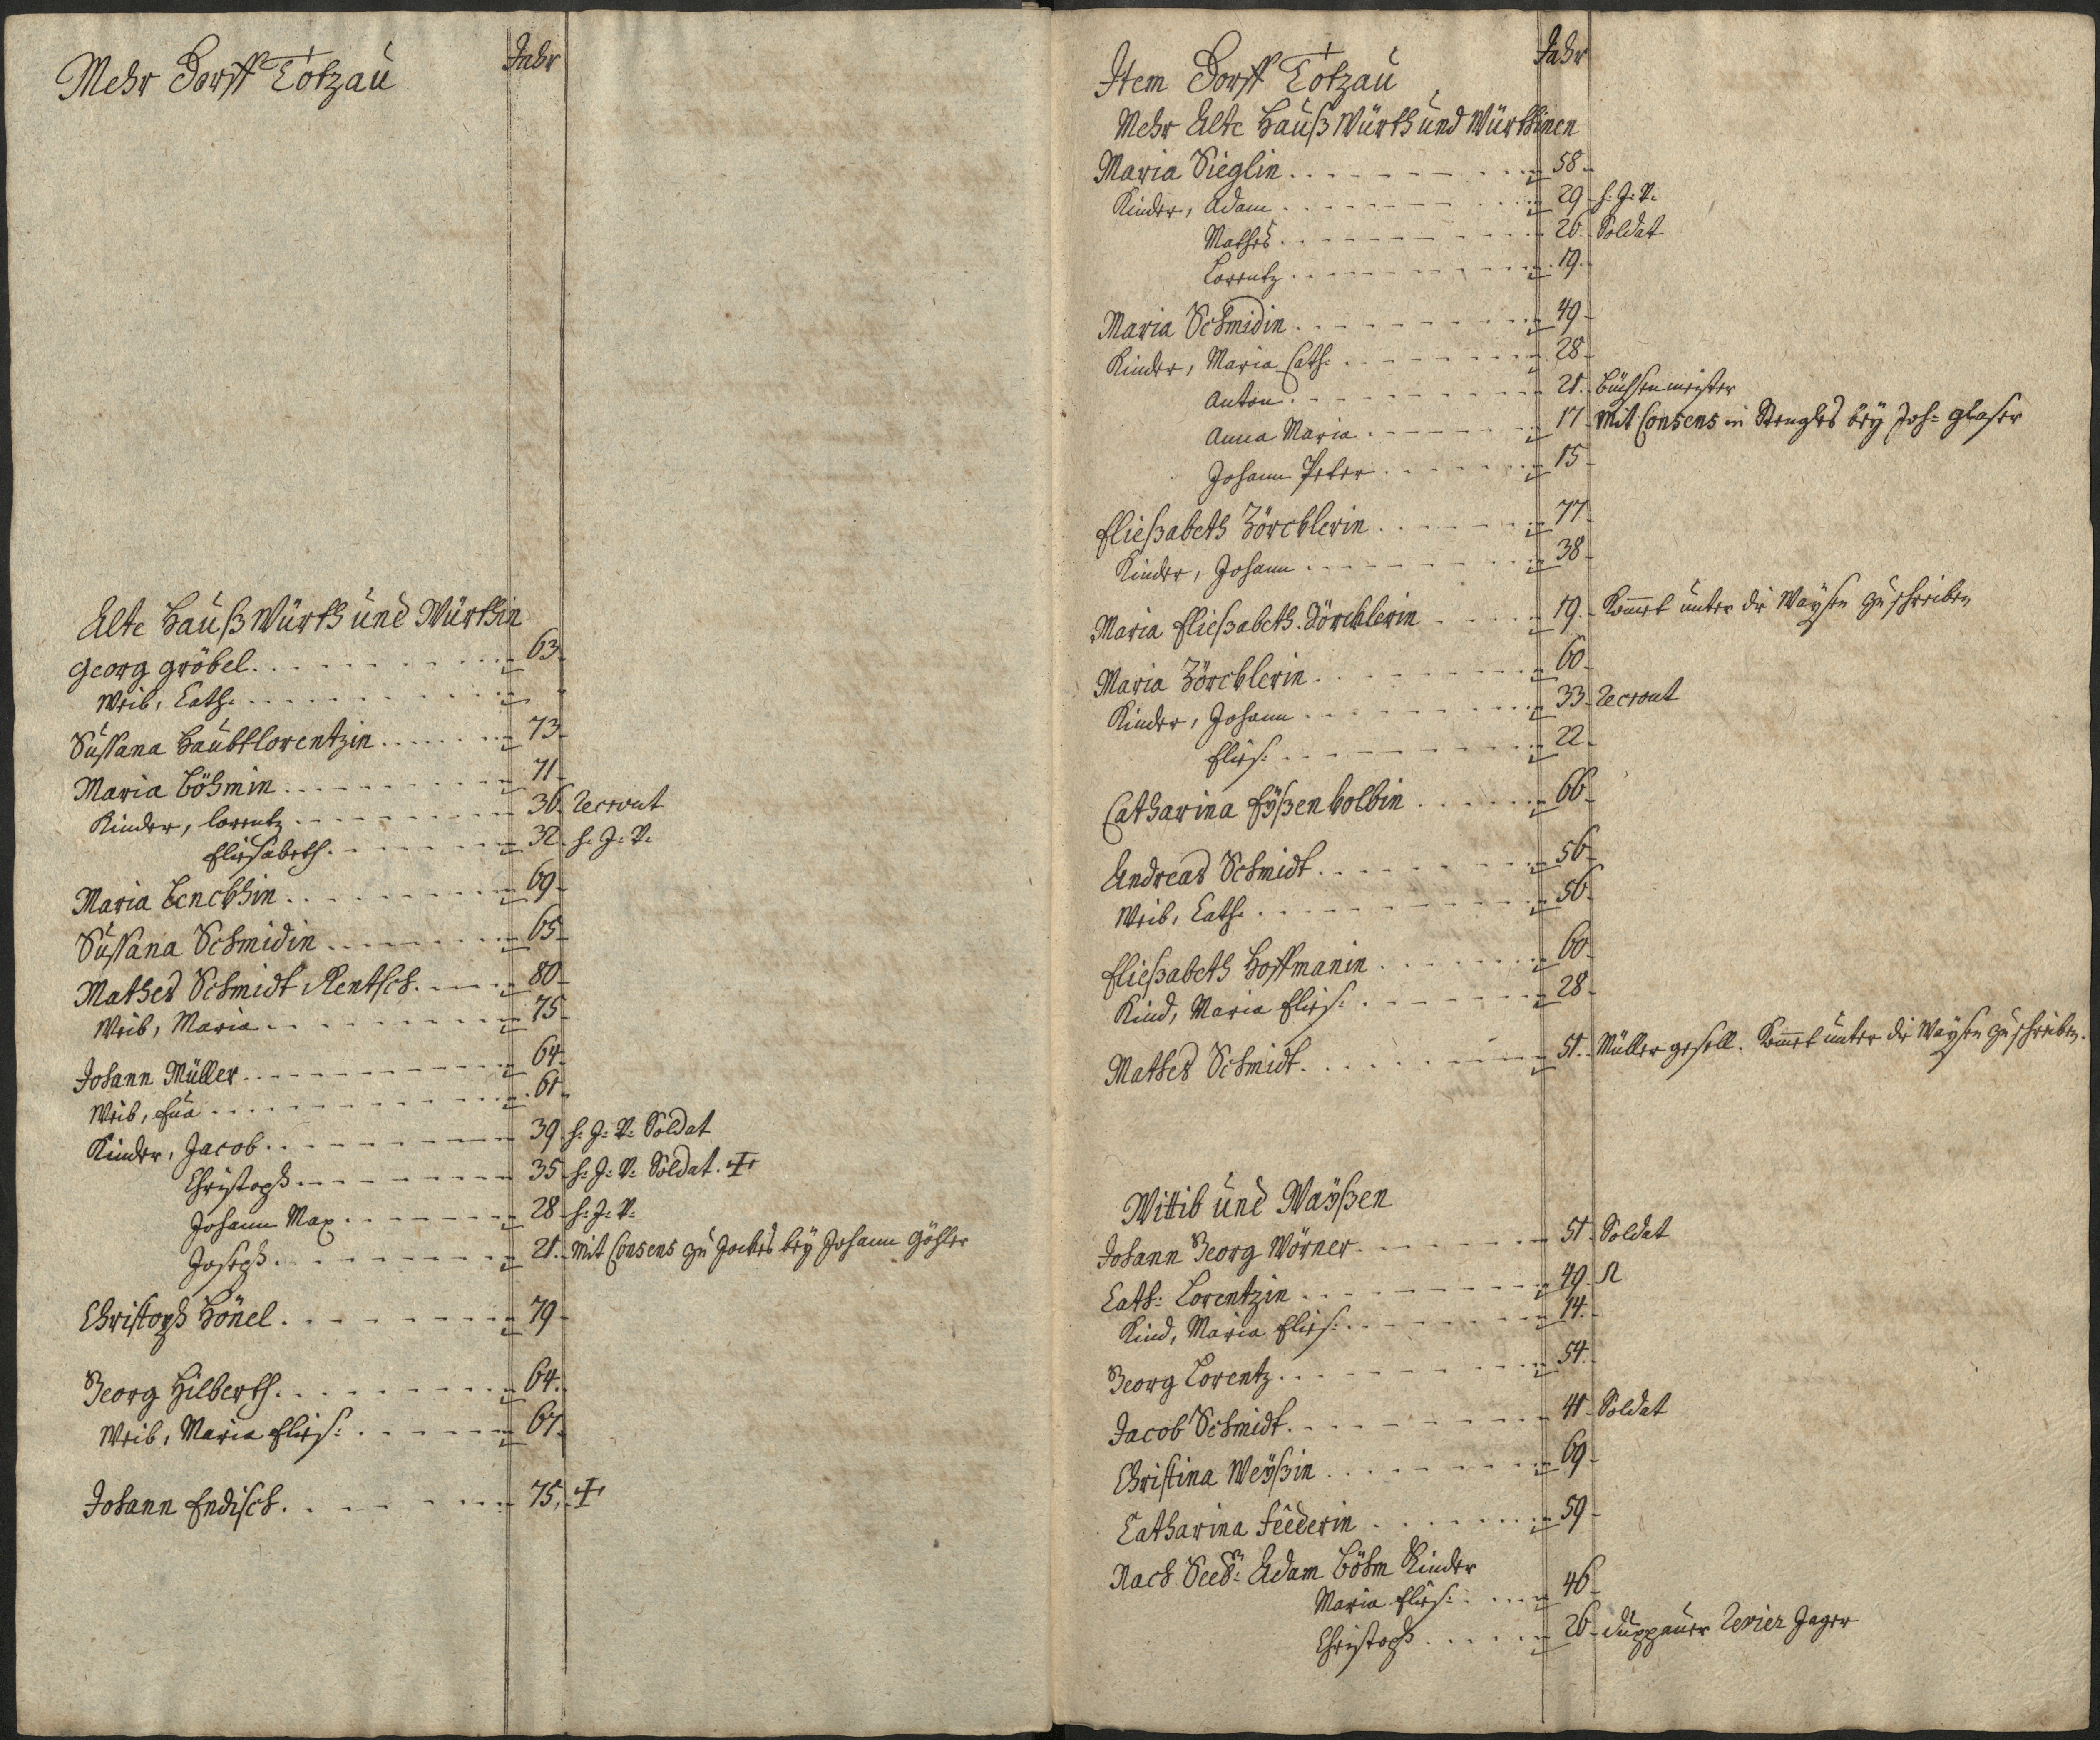 Mehr Dorff Totzau
Jahr
Alte Hauß Würth und Würthin
Georg Gröbel 63
Weib, Cath:
Sussana Haubtlorentzin 73
Maria Böhmin 71
Kinder, Lorentz 36 Recrout
Eliesabeth 32 h: J: V:
Maria Lenckhin 69
Sussana Schmidin 65
Mathes Schmidt Rentsch 80
Weib, Maria 75
Johann Müller 64
Weib, Eva 61
Kinder, Jacob 39 h: J: V: Soldat
Christoph 35 h: J: V: Soldat
Johann Max 28 h: J: V:
Joseph 21 Mit Consens zu Jockes bey Johann Göhler
Christoph Hönel 79
Georg Hilberth 64
Weib, Maria Elies: 67
Johann Endisch 75
Item Dorff Totzau
Jahr
Mehr Alte Hauß Würth und Würthinen
Maria Sieglin 58
Kinder, Adam 29 h: J: V:
Mathes 26 Soldat
Lorentz 19
Maria Schmidin 49
Kinder, Maria Cath: 28
Anton 21 Büchsenmeister
Anna Maria 17 Mit Consens in Stengles bey Joh: Glaser
Johann Peter 15
Eließabeth Zörcklerin 77
Kinder, Johann 38
Maria Eließabeth Zörcklerin 19 Komet unter die Waysen zu schreiben
Maria Zörcklerin 60
Kinder, Johann 33 Recrout
Elies: 22
Catharina Eyßenkolbin 66
Andreas Schmidt 56
Weib, Cath: 56
Eließabeth Hoffmanin 60
Kind, Maria Elies: 28
Mathes Schmidt 51 Müller gesell. Komet unter die Waysen zu schreiben.
Wittib und Wayßen
Johann Georg Wörner 51 Soldat
Cath: Lorentzin 49
Kind, Maria Elies: 14
Georg Lorentz 54
Jacob Schmidt 41 Soldat
Christina Weyßin 69
Catharina Feederin 59
Nach Seel: Adam Böhm Kinder
Maria Elies: 46
Christoph 26 Duppauer Revier Jager